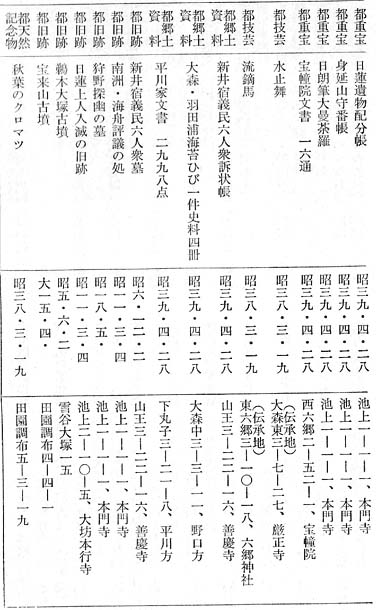 都重宝 日蓮遺物配分帳 昭三九・四・二八 池上一―一―一、本門寺
都重宝 身延山守番帳 昭三九・四・二八 池上一―一―一、本門寺
都重宝 日朗筆大曼荼羅 昭三九・四・二八 池上一―一―一、本門寺
都重宝 宝幢院文書 一六通 昭三九・四・二八 西六郷二―五二―一、宝幢院
都技芸 水止舞 昭三八・三・一九 (伝承地)
大森東三―七―二七、厳正寺
都技芸 流鏑馬 昭三八・三・一九 (伝承地)
東六郷三―一〇―一八、六郷神社
都郷土資料 新井宿義民六人衆訴状帳 昭三九・四・二八 山王三―二二―一六、善慶寺
都郷土資料 大森・羽田浦海苔ひび一件史料四冊 昭三九・四・二八 大森中三―三―一一、野口方
都郷土資料 平川家文書 二九九八点 昭三九・四・二八 下丸子三―二一―八、平川方
都旧跡 新井宿義民六人衆墓 昭六・一二・二 山王三―二二―一六、善慶寺
都旧跡 南洲・海舟評議の処 昭一一・三・四 池上一―一―一、本門寺
都旧跡 狩野探幽の墓 昭一八・五・ 池上一―一―一、本門寺
都旧跡 日蓮上人入滅の旧跡 昭一一・三・四 池上二―一〇―五、大坊本行寺
都旧跡 鵜木大塚古墳 昭五・六・二 雪谷大塚一五
都旧跡 宝来山古墳 大一五・四・ 田園調布四―四―一
都天然記念物 秋葉のクロマツ 昭三八・三・一九 田園調布五―三―一九